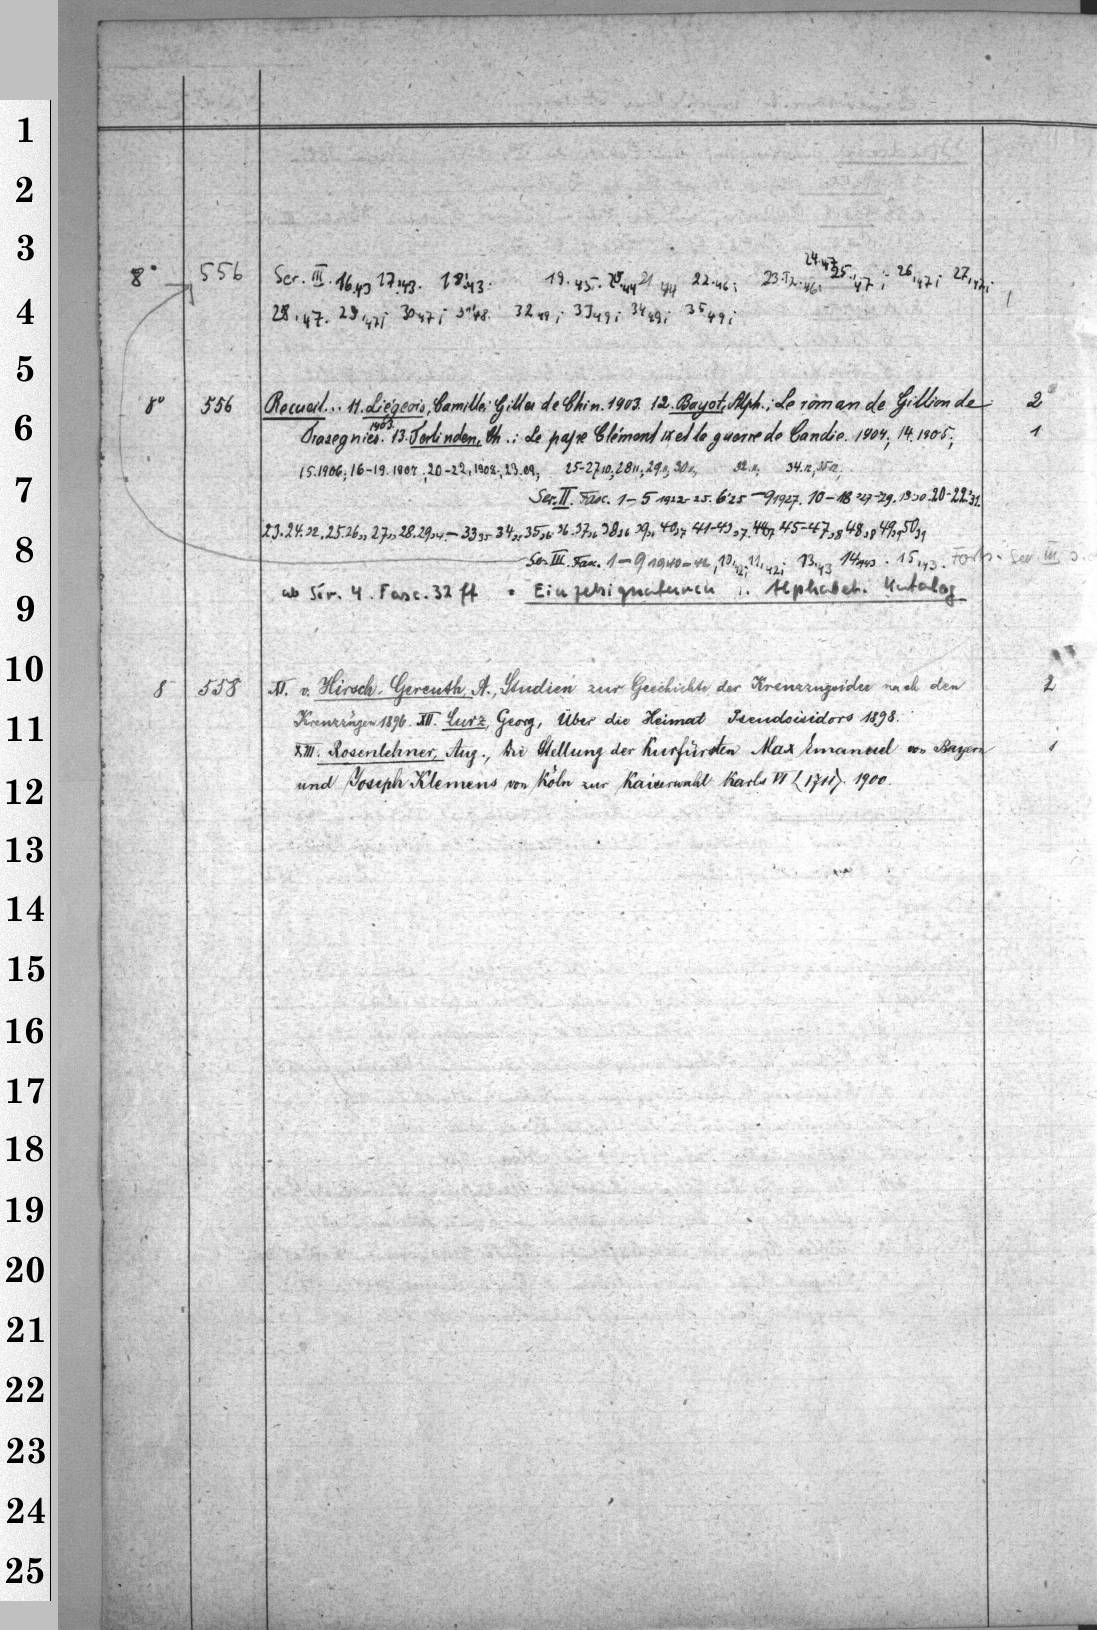 8° 556 Ser. III. 16,43 17,43. 18,43. 19.45. 20,44 21 44 22.46; 23. 46; 24.47 25.,47; 26,47; 27,47;
28,47. 29,47; 30 47; 31 48. 32 49; 33 49; 34 49; 35 49;
8° 556 Recueil... 11. Liégeois, Camille: Gilles de Chin. 1903. 12. Bayot, Alph.; Le roman de Gillion de 2
Trazegnies. 1903. 13. Terlinden, Ch.: Le pape Clément IX et la guerre de Candie. 1904; 14. 1905; 1
15. 1906; 16-19. 1907; 20-22, 1908; 23. 09; 25-27 10, 28 11, 29 11, 30 11, 32 11, 34. 12, 35 12,
Ser. II. Fasc. 1-5 1922-25. 6 25 -9 1927. 10-18 27-29. 19 30. 20-22 31.
23. 24. 32, 25. 26 33, 27 33, 28. 29 34. - 33 35 34 35, 35 36 36. 37 36 38 36 39 40 37 41-43 37. 44 37 45-47 38 48 38 49 39 50 39
Ser. III. Fasc. 1-9 1940-42, 10,42; 11,42; 13,43 14,43. 15,43. Forts. Ser III
ab Sér. 4. Fasc. 32 ff = Einzelsignaturen i. Alphabet. Katalog
8 558 XI. v. Hirsch-Gereuth, A., Studien zur Geschichte der Kreuzzugsidee nach den 2
Kreuzzügen 1896. XII. Lurz, Georg, Über die Heimat Pseudoisidors 1898.
XIII. Rosenlehner, Aug., Die Stellung der Kurfürsten Max Emanuel von Bayern 1
und Joseph Klemens von Köln zur Kaiserwahl Karls VI (1711). 1900.
1
2
3
4
5
6
7
8
9
10
11
12
13
14
15
16
17
18
19
20
21
22
23
24
25